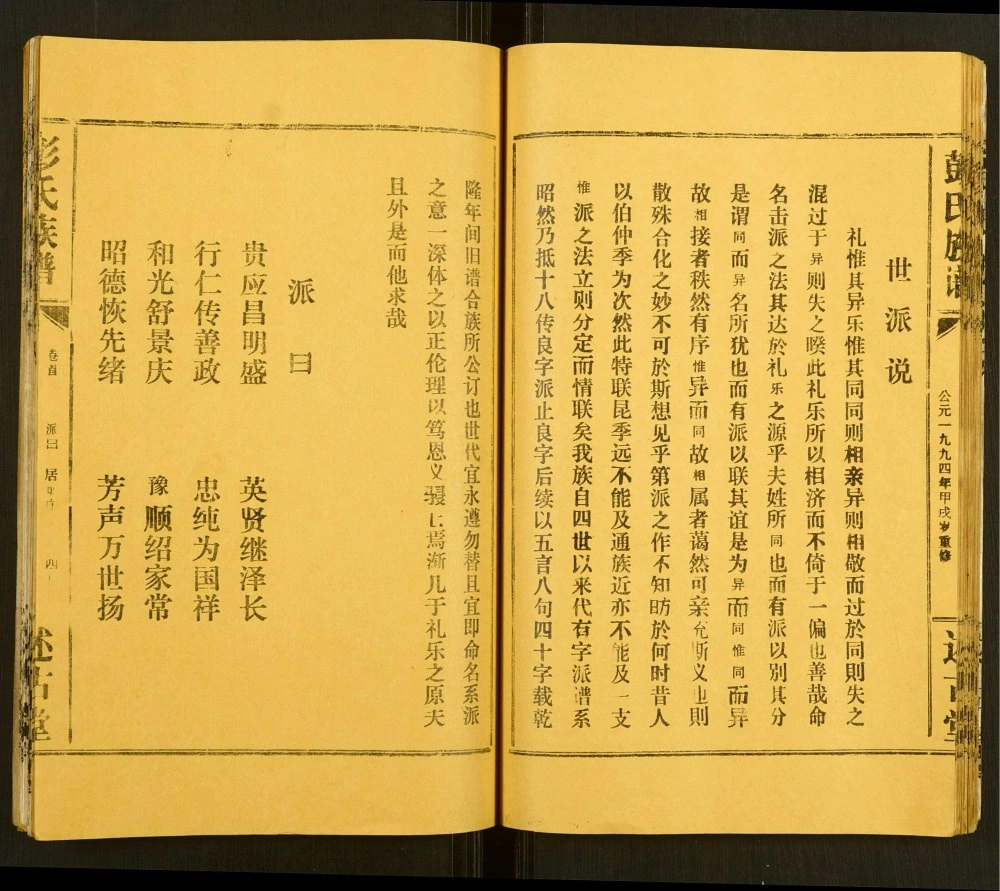 彭氏族谱
公元一九九四年甲戌岁重修
述古堂
世派说
礼惟其异乐惟其同同则相亲异则相敬而过於同則失之
混过于异则失之暌此礼乐所以相济而不倚于一偏也善哉命
名击派之法其达於礼乐之源乎夫姓所同也而有派以别其分
是谓同而异名所犹也而有派以联其谊是为异而同惟同而异
故相接者秩然有序惟异而同故相属者蔼然可亲允斯义也則
散殊合化之妙不可於斯想见乎第派之作不知昉於何时昔人
以伯仲季为次然此特联昆季远不能及通族近亦不能及一支
惟派之法立则分定而情联矣我族自四世以来代有字派谱系
昭然乃抵十八传良字派止良字后续以五言八句四十字载乾
隆年间旧谱合族所公订也世代宜永遵勿替且宜即命名系派
之意一深体之以正伦理以笃恩义焉渐几于礼乐之原夫
且外是而他求哉
派曰
贵应昌明盛 英贤继泽长
行仁传善政 忠纯为国祥
和光舒景庆 豫顺绍家常
昭德恢先绪 芳声万世扬
彭氏族谱
卷首
派曰
居
四
述古堂